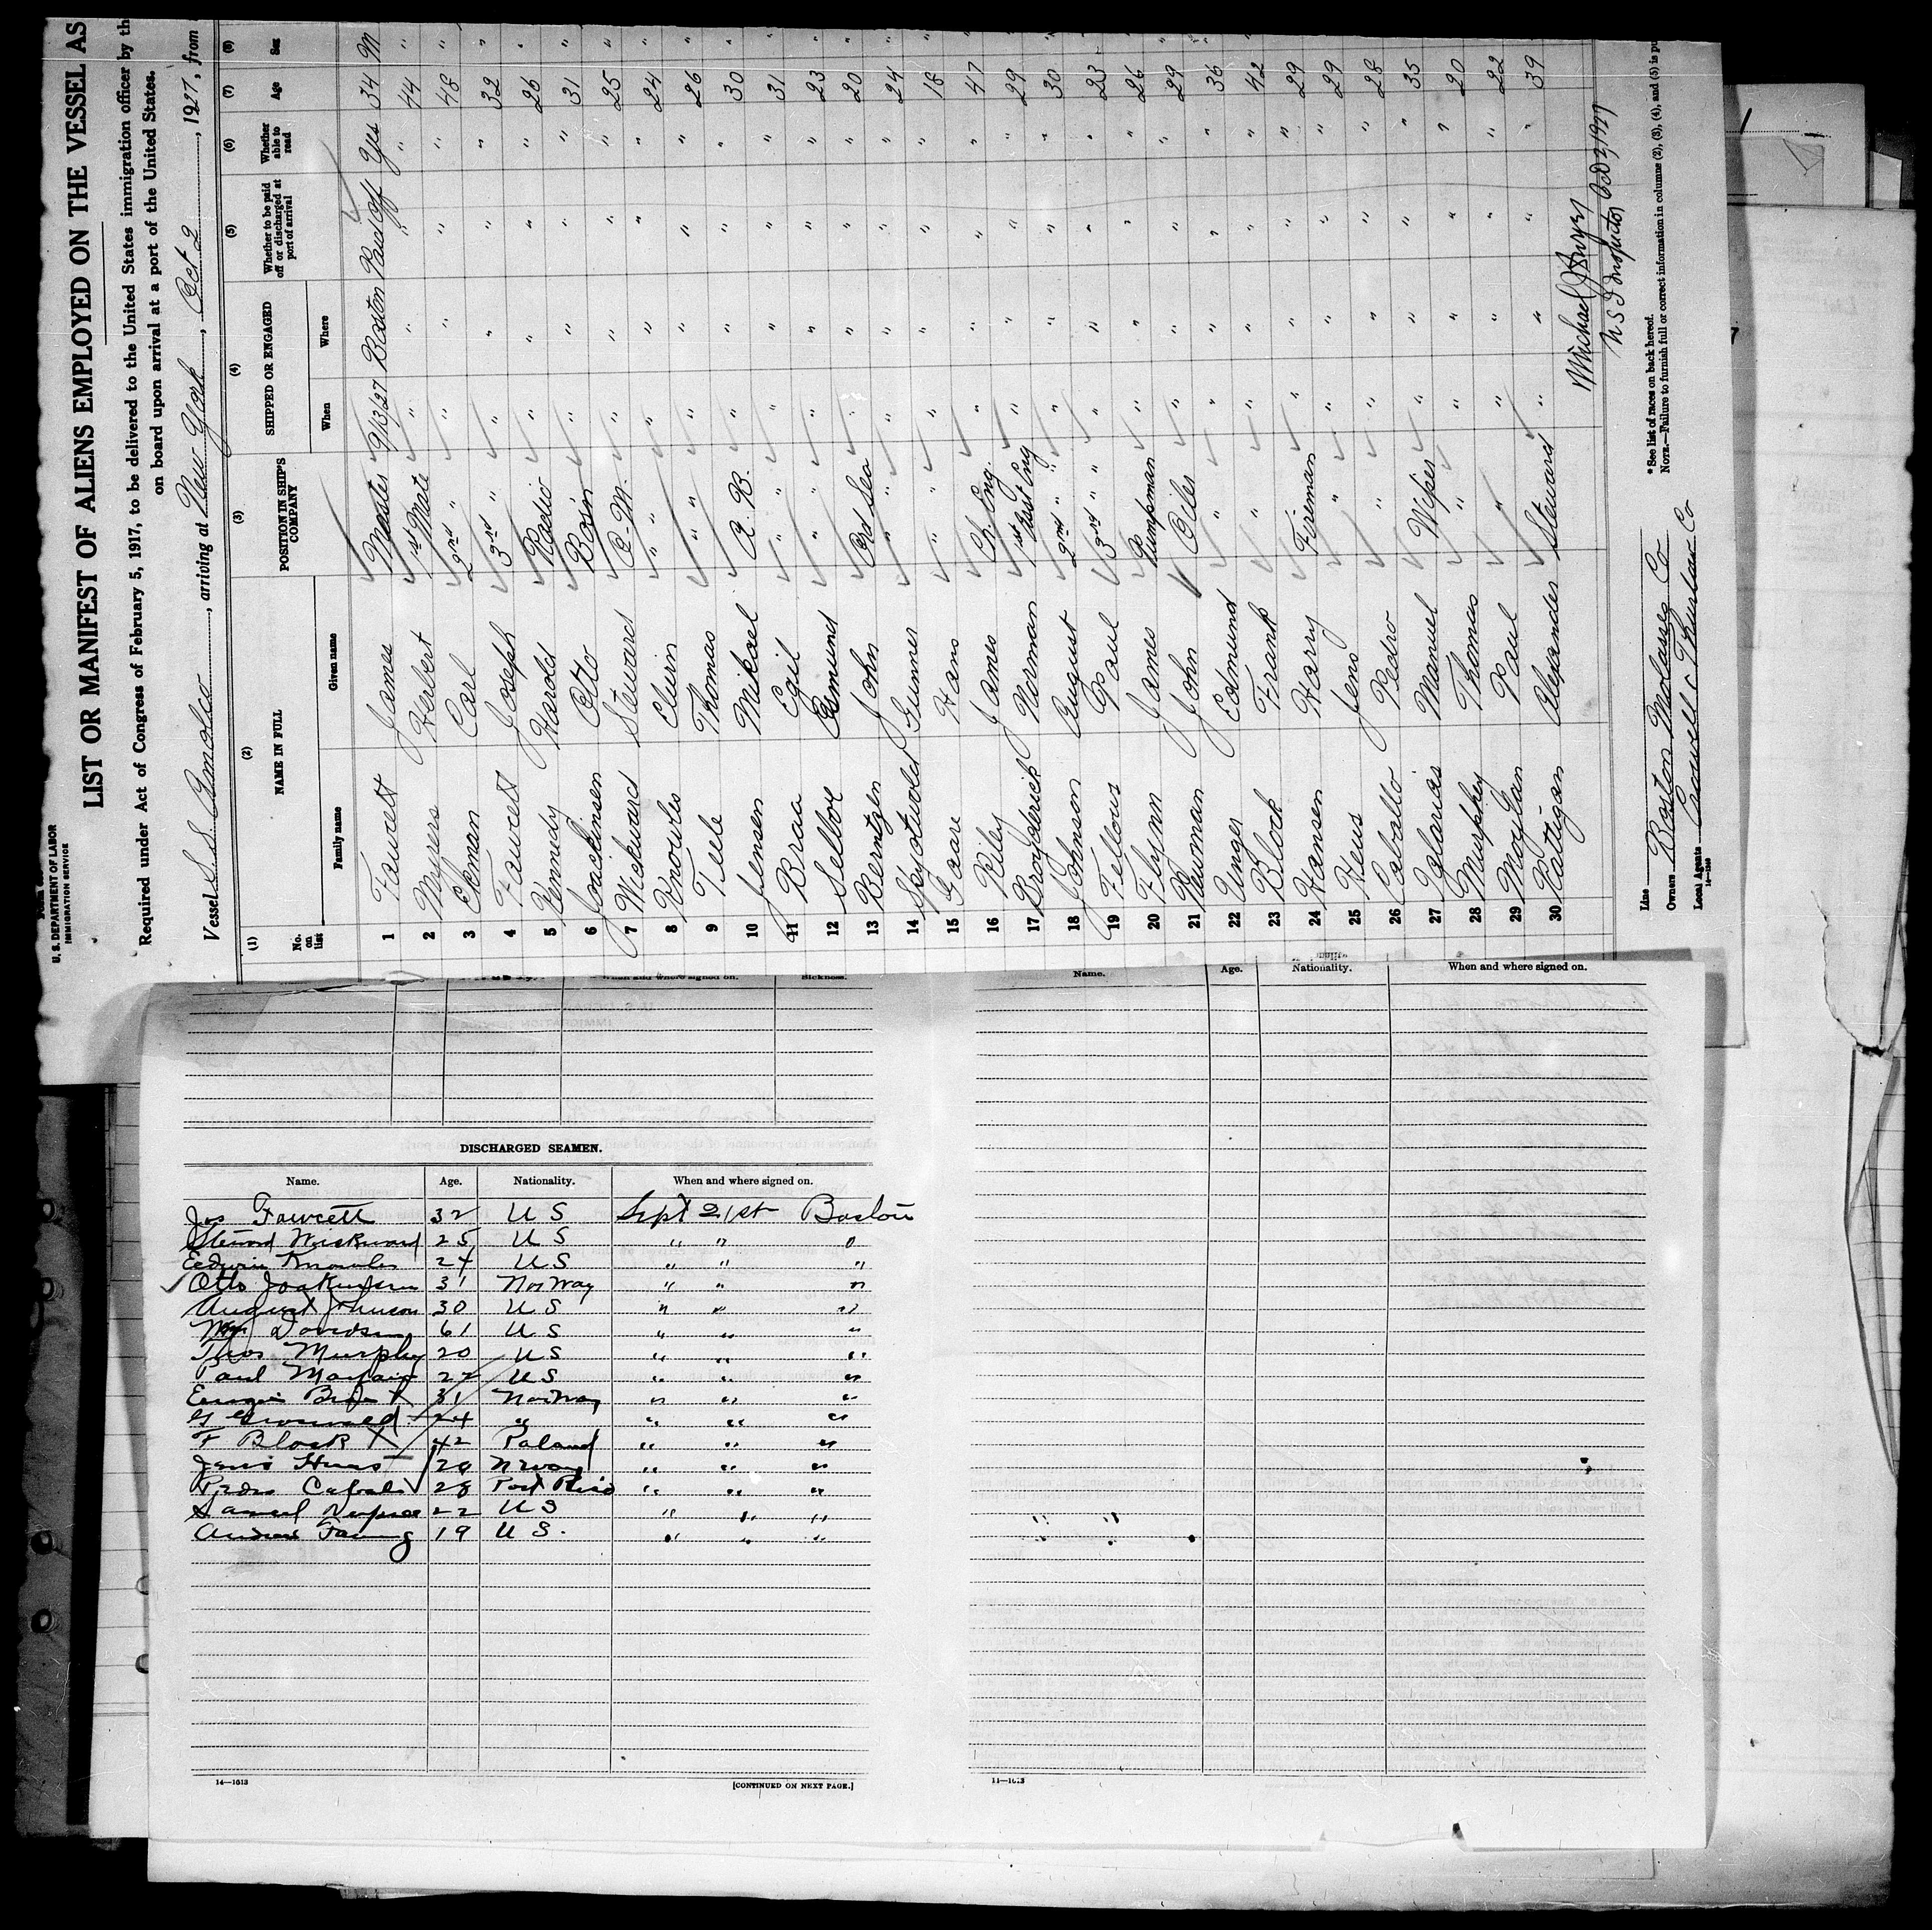 U. S. DEPARTMENT OF LABOR
IMMIGRATION SERVICE
LIST OR MANIFEST OF ALIENS EMPLOYED ON THE VESSEL AS
Required under Act of Congress of February 5, 1917, to be delivered to the United States immigration officer by th
on board upon arrival at a port of the United States.
Vessel S.S. Amolco, arriving at New York, Oct 2, 1927, from
(1) (2) (3) (4) (5) (6) (7) (8)
No. on list NAME IN FULL POSITION IN SHIP'S COMPANY SHIPPED OR ENGAGED Whether to be paid off or discharged at port of arrival Whether able to read Age Sex
Family name Given name When Where
1 Fawcett James Master 9/13/27 Boston Paid off Yes 34 M
2 Myers Herbert 1st Mate " " " " 44 "
3 Ekman Carl 2nd " " " " " 48 "
4 Fawcett Joseph 3rd " " " " " 32 "
5 Kennedy Harold Radio " " " " 26 "
6 Joackinsen Otto Bosin " " " " 31 "
7 Wickward Steward Q. M. " " " " 25 "
8 Knowles Elwin " " " " " " 24 "
9 Teele Thomas " " " " " " 26 "
10 Jensen Mikael A. B. " " " " 30 "
11 Braa Egil " " " " " 31 "
12 Selboe Esmund " " " " " 23 "
13 Berntzen John Ord Sea " " " " 20 "
14 Skjotwold Gunner " " " " " 24 "
15 Gaare Hans " " " " " 18 "
16 Riley James Ch. Eng. " " " " 47 "
17 Broyderick Norman 1st Asst Eng " " " " 29 "
18 Johnson August 2nd " " " " " " 30 "
19 Fellows Paul 3rd " " " " " " 23 "
20 Flynn James Pumpman " " " " 26 "
21 Newman John Oiler " " " " 29 "
22 Unger Edmund " " " " " 36 "
23 Block Frank " " " " " 42 "
24 Hansen Harry Fireman " " " " 29
25 Heus Jens " " " " " 29
26 Caballo Pedro " " " " " 28
27 Manuel Wiper " " " " 35
28 Murphey Thomas " " " " " 20
29 Moylan Paul " " " " " 22
30 Rattigan Alexander Steward " " " " 39
Michael J
U S I Inspector, Oct 2, 1927
* See list of races on back hereof.
Line NOTE.—Failure to furnish full or correct information in columns (2), (3), (4), and (5) is pu
Owners Boston Molasses Co
Local Agents Thurlow Co
14—1240
When and where signed on. Sickness.
Name. Age. Nationality. When and where signed on.
DISCHARGED SEAMEN.
Name. Age. Nationality. When and where signed on.
Jos Fawcett 32 U S Sept 21st Boston
Steward Wickward 25 U S " " "
Edwin Knowles 24 U S " " "
Otto Joakinsen 31 Norway " " "
August Johnson 30 U S " " "
Wm Davidson 61 U S " " "
Thos Murphy 20 U S " " "
Paul 22 U S " " "
31 Norway " " "
G 24 " " " "
F Block 42 Poland " " "
Jens 29 Nrway " " "
Pedro 28 Port Rico " " "
Samuel 22 U S " " "
Andrew 19 U S. " " "
14—1613 [CONTINUED ON NEXT PAGE.]